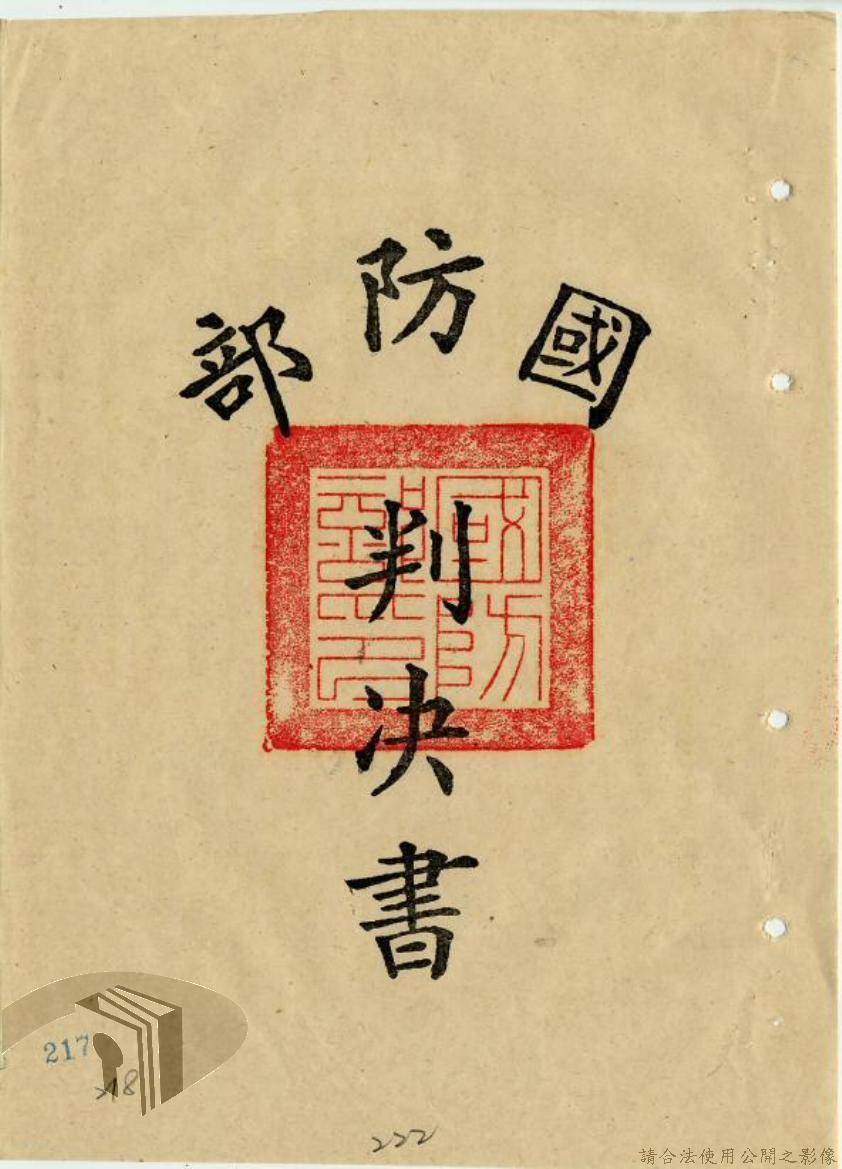 國防部
判決書
國防部印
217
218
222
請合法使用公開之影像